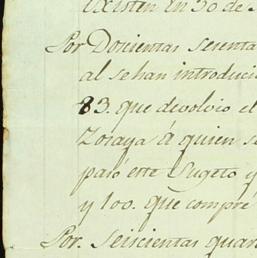 existen en 30 de
Por Docientas setenta
al se han introduci
83. que devolvio el
Zoraya á quien s
paró este Sugeto y
y 100. que compré
Por. Seiscientas quar